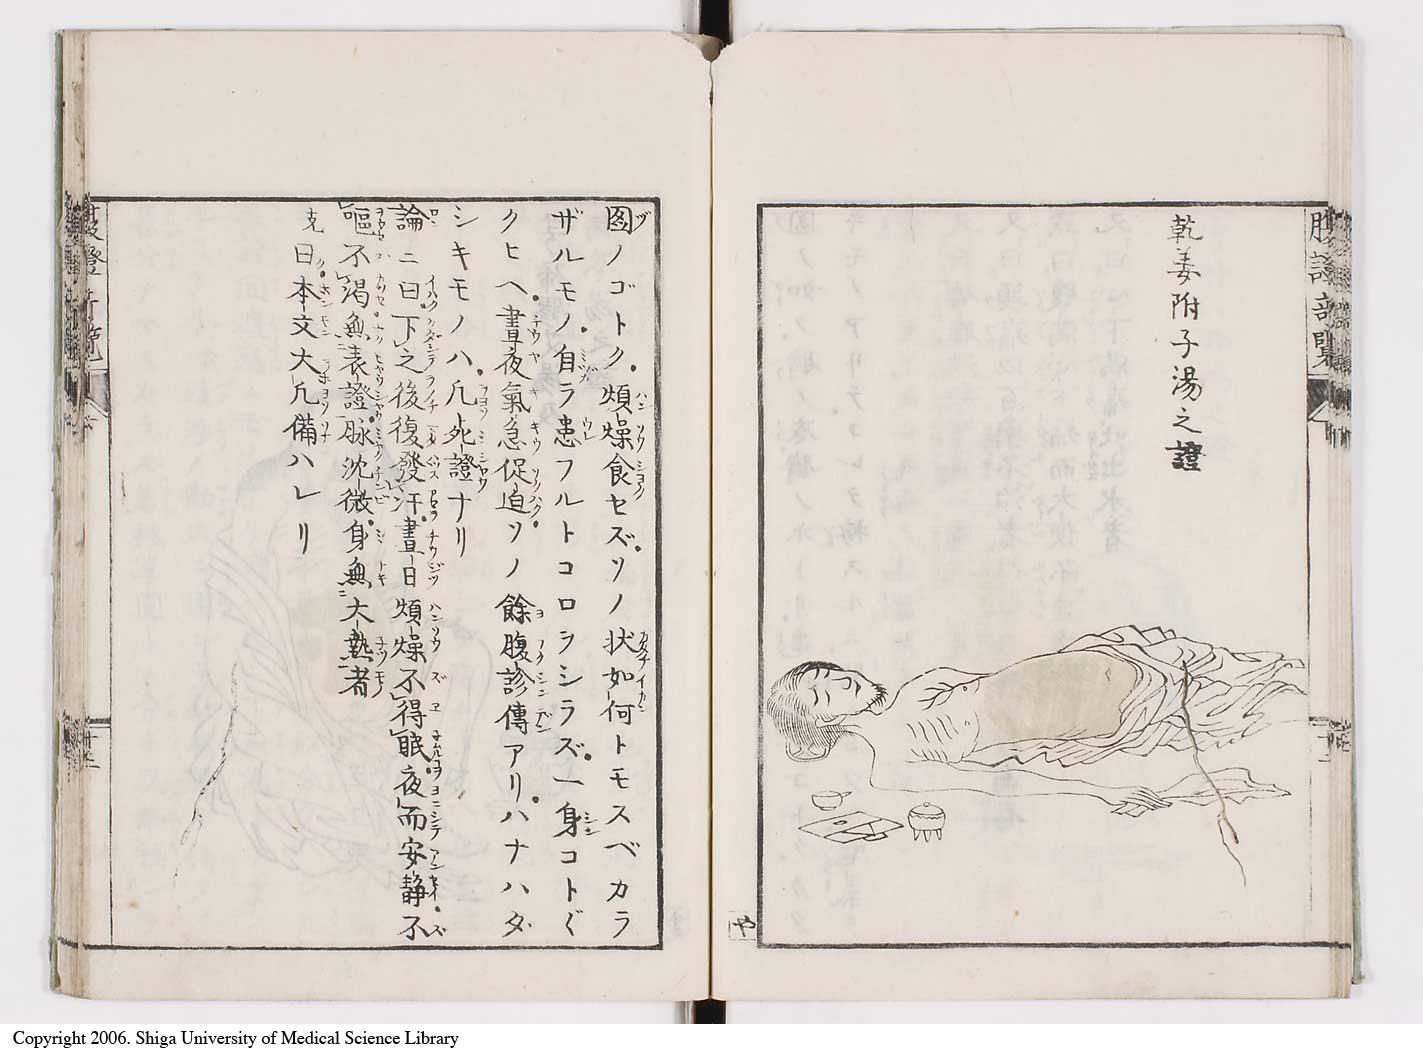 乾姜附子湯之證
図ノゴトク煩燥食セズソノ状如何トモスベカラ
ザルモノ自ラ患フルトコロヲシラズ一身コトぐ
クヒヘ晝夜氣急促迫ソノ餘腹診傳アリハナハダ
シキモノハ凢死證ナリ
論ニ曰下之後復發汗晝日煩燥不得眠夜而安静不
嘔不渇無表證脉沈微身無大熱者
克曰本文大凢備ハレリ
や
Copyright 2006. Shiga University of Medical Science Library